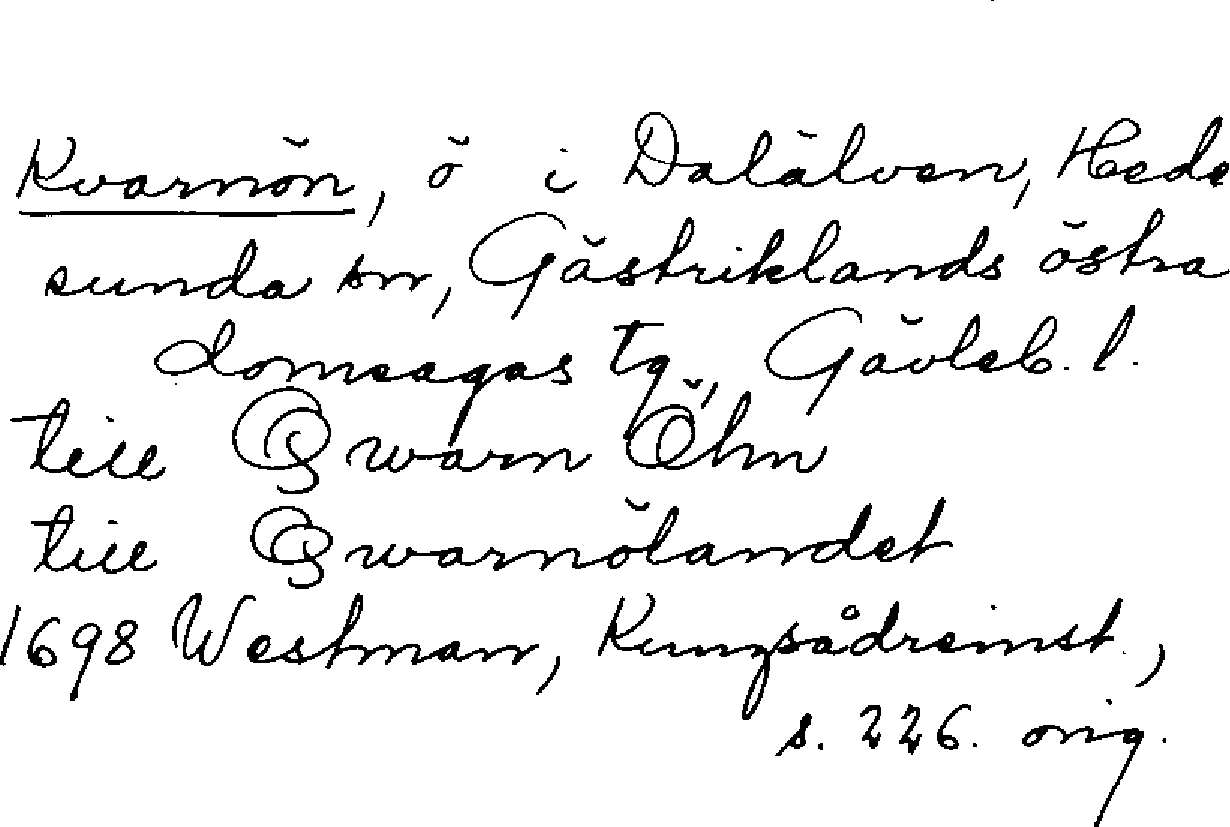 Kvarnön, ö i Dalälven, Hede
sunda sn, Gästriklands östra
domsagas tg, Gävleb. l.
till Qwarn Öhn
till Qwarnölandet
1698 Westman, Kungsådreinst.,
s. 226. orig.